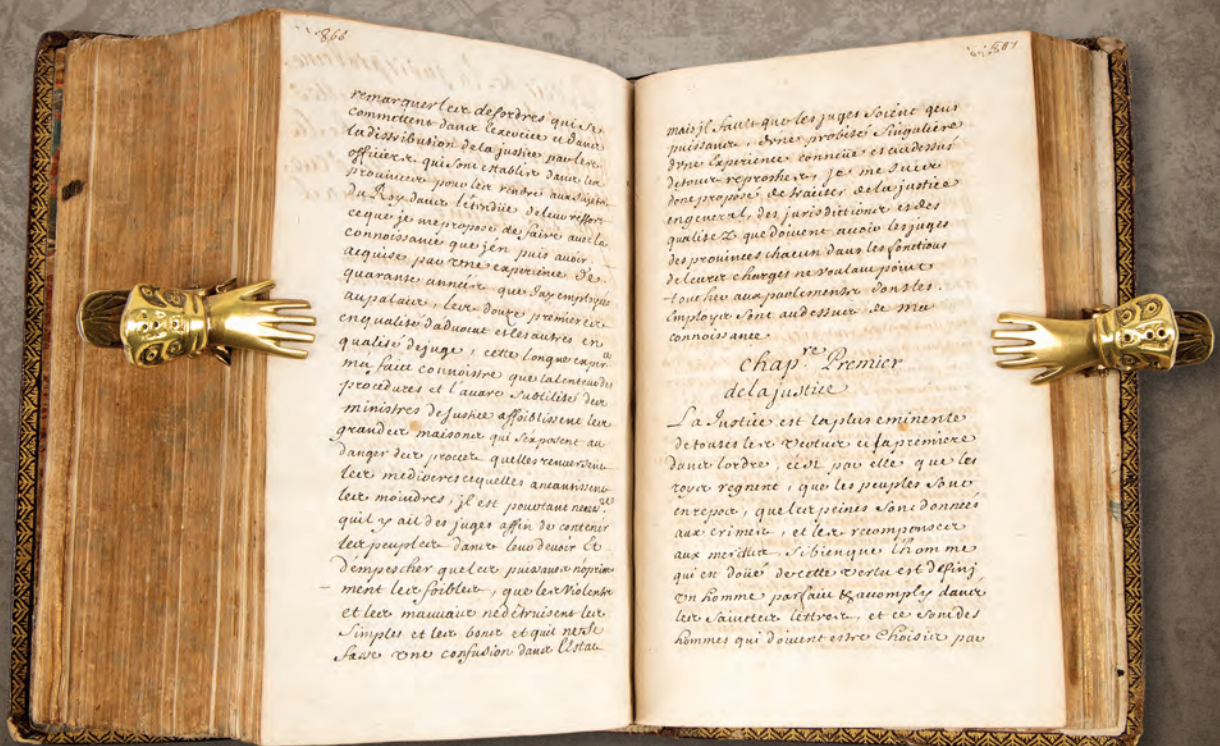 866
remarquer les desordres qui se
committent dans lexercice et dans
la distribution de la justice par les
officiers qui sont establis dans les
provinces pour les rendre aux sujets
du Roy dans létendüe de leur ressort
ce que je me propose de faire avec la
connoissance que jén puis avoir
acquise par vne experience de
quarante années que Jay employés
au palais, les douze premieres
en qualité dáduocat et les autres en
qualité de juge, cette longue exper.ce
má faict connoistre que la lenteur des
procedures et l'auare subtilité des
ministres de Justice affoiblissent les
grandes maisons qui sexposent au
danger des procez quelles renuersent
les mediocres et quelles aneantissent
les moindres, jl est pourtant necess.re
quil y ait des juges affin de contenir
les peuples dans leur devoir Et
dempescher que les puissans nóprim
ment les foibles, que les Violents
et les mauvais ne détruisent les
simples et les bons et quil ne se
fasse vne confusion dans lEstat
mais jl fault que les juges soient gens
puissants, dvne probité singuliere
dvne Experience connüe et au dessus
de tous reproches, je me suis
donc proposé de traiter de la justice
en general, des jurisdictions et des
qualitez que doivent avoir les juges
des provinces chacun dans les fonctions
de leurs charges ne voulant point
toucher aux parlements dont les
Employs sont au dessus de ma
connoissance
chap.re Premier
de la justice
La Justice est la plus eminente
de toutes les vertus et la premiere
dans lordre, cést par elle que les
roys regnent, que les peuples sont
en repos, que les peines sont données
aux crimes, et les recompenses
aux merites, si bien que lhomme
qui est doüé de cette vertu est definj
vn homme parfait & accomply dans
les sainctes lettres, et ce sont des
hommes qui doivent estre choisis par